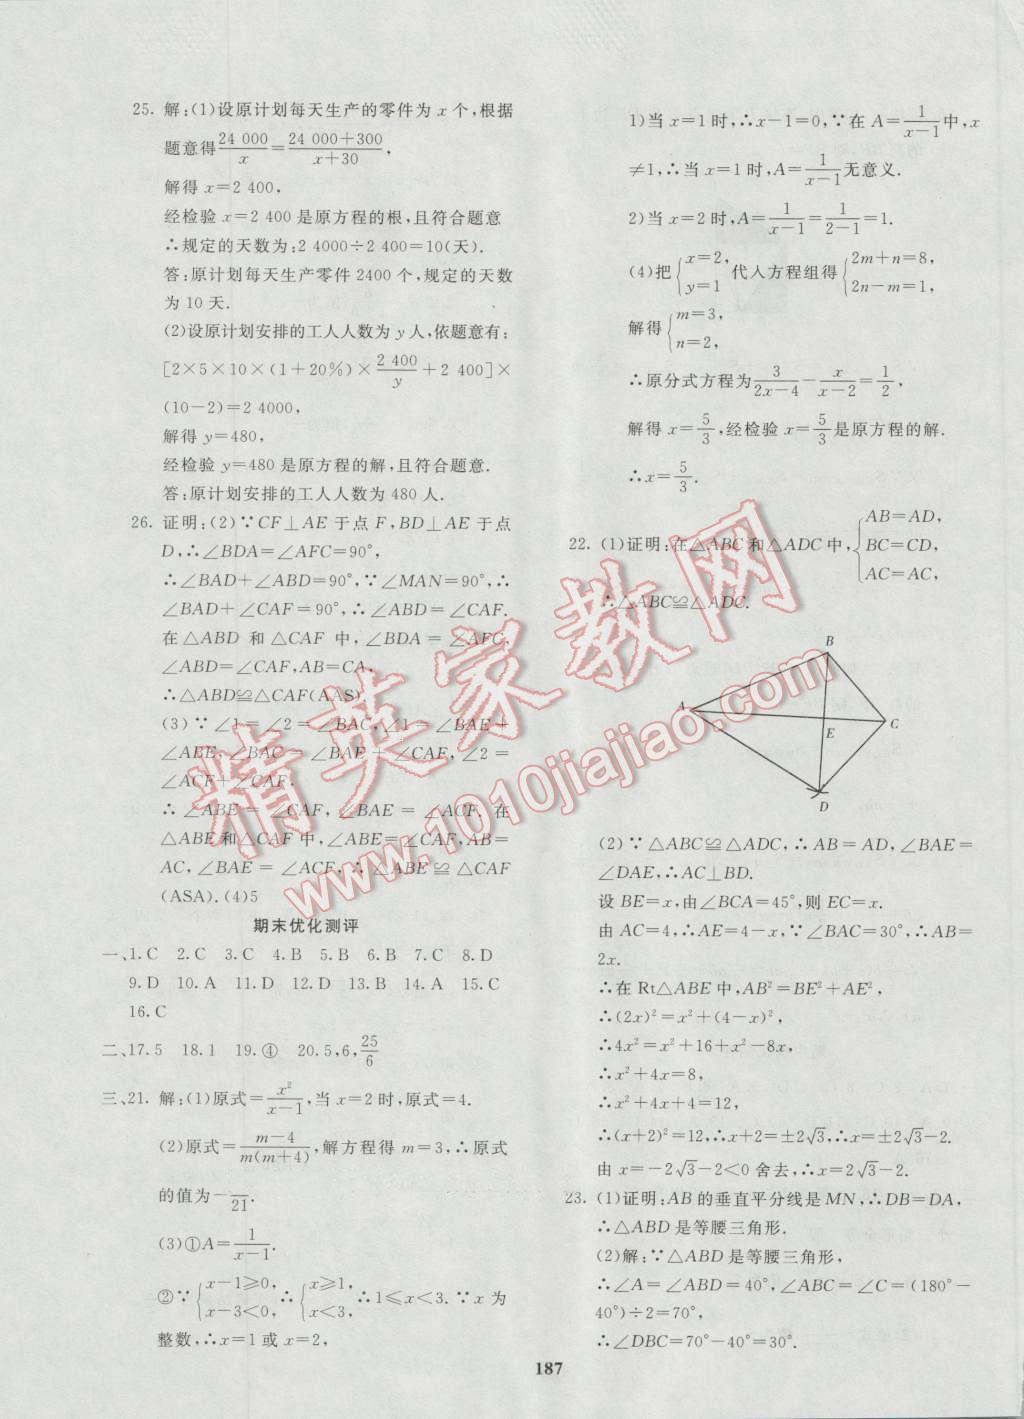 25. 解:(1)设原计划每天生产的零件为 x 个,根据
题意得24 000/x=24 000+300/x+30,
解得 x=2 400,
经检验 x=2 400 是原方程的根,且符合题意
∴规定的天数为:2 4000÷2 400=10(天).
答:原计划每天生产零件 2400 个,规定的天数
为 10 天.
(2)设原计划安排的工人人数为 y 人,依题意有:
[2×5×10×(1+20%)×2 400/y+2 400]×
(10-2)=2 4000,
解得 y=480,
经检验 y=480 是原方程的解,且符合题意.
答:原计划安排的工人人数为 480 人.
26. 证明:(2)∵CF⊥AE 于点 F,BD⊥AE 于点
D,∴∠BDA=∠AFC=90°,
∴∠BAD+∠ABD=90°,∵∠MAN=90°,∴
∠BAD+∠CAF=90°,∴∠ABD=∠CAF.
在△ABD 和△CAF 中,∠BDA=∠AFC,
∠ABD=∠CAF,AB=CA,
∴△ABD≌△CAF(AAS).
(3)∵∠1=∠2=∠BAC,∠1=∠BAE+
∠ABE,∠BAC=∠BAE+∠CAF,∠2=
∠ACF+∠CAF,
∴∠ABE=∠CAF,∠BAE=∠ACF, 在
△ABE 和△CAF 中,∠ABE=∠CAF,AB=
AC,∠BAE=∠ACF,∴△ABE≌△CAF
(ASA).(4)5
期末优化测评
一、1.C 2.C 3.C 4.B 5.B 6.B 7.C 8.D
9.D 10.A 11.D 12.D 13.B 14.A 15.C
16.C
二、17.5 18.1 19.④ 20.5,6,25/6
三、21. 解:(1)原式=x²/x-1,当 x=2 时,原式=4.
(2)原式=m-4/m(m+4),解方程得 m=3,∴原式
的值为-/21.
(3)①A=1/x-1.
②∵{x-1≥0, x-3<0,∴{x≥1, x<3.∴1≤x<3.∵x 为
整数,∴x=1 或 x=2,
1)当 x=1 时,∴x-1=0,∵在 A=1/x-1中,x
≠1,∴当 x=1 时,A=1/x-1无意义.
2)当 x=2 时,A=1/x-1=1/2-1=1.
(4)把{x=2, y=1 代人方程组得{2m+n=8, 2n-m=1,
解得{m=3, n=2,
∴原分式方程为3/2x-4-x/x-2=1/2,
解得 x=5/3,经检验 x=5/3是原方程的解.
∴x=5/3.
22. (1)证明:在△ABC 和△ADC 中,{AB=AD, BC=CD, AC=AC,
∴△ABC≌△ADC.
B
A
C
E
D
(2)∵△ABC≌△ADC,∴AB=AD,∠BAE=
∠DAE,∴AC⊥BD.
设 BE=x,由∠BCA=45°,则 EC=x.
由 AC=4,∴AE=4-x,∵∠BAC=30°,∴AB=
2x.
∴在 Rt△ABE 中,AB²=BE²+AE²,
∴(2x)²=x²+(4-x)²,
∴4x²=x²+16+x²-8x,
∴x²+4x=8,
∴x²+4x+4=12,
∴(x+2)²=12,∴x+2=±2√3,∴x=±2√3-2.
由 x=-2√3-2<0 舍去,∴x=2√3-2.
23. (1)证明:AB 的垂直平分线是 MN,∴DB=DA,
∴△ABD 是等腰三角形.
(2)解:∵△ABD 是等腰三角形,
∴∠A=∠ABD=40°,∠ABC=∠C=(180°-
40°)÷2=70°,
∴∠DBC=70°-40°=30°.
187
精英家教网
www.1010jiajiao.com